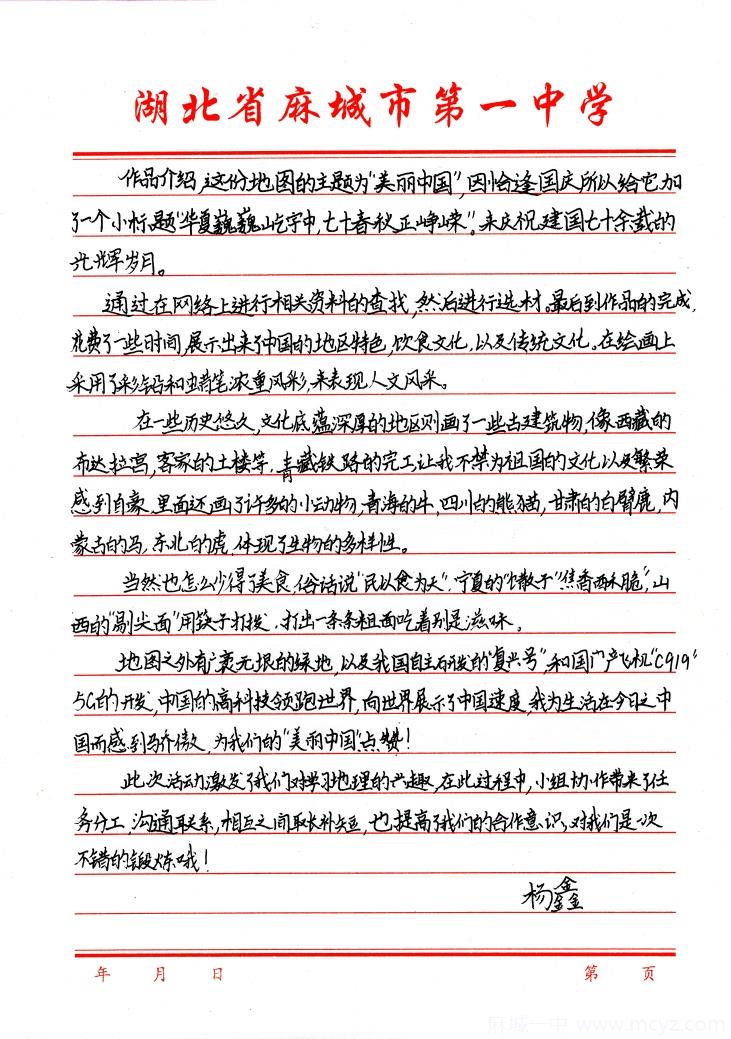 湖北省麻城市第一中学
作品介绍，这份地图的主题为“美丽中国”，因恰逢国庆所以给它加
了一个小标题“华夏巍巍屹宇中，七十春秋正峥嵘”。来庆祝建国七十余载的
光辉岁月。
通过在网络上进行相关资料的查找，然后进行选材。最后到作品的完成，
花费了一些时间，展示出来了中国的地区特色，饮食文化，以及传统文化。在绘画上
采用了彩铅和蜡笔浓重风彩，来表现人文风采。
在一些历史悠久，文化底蕴深厚的地区则画了一些古建筑物，像西藏的
布达拉宫，客家的土楼等，青藏铁路的完工让我不禁为祖国的文化以及繁荣
感到自豪。里面还画了许多的小动物，青海的牛，四川的熊猫，甘肃的白臂鹿，内
蒙古的马，东北的虎，体现了生物的多样性。
当然也怎么少得了美食，俗话说“民以食为天”，宁夏的“馓子”“焦香酥脆”，山
西的“剔尖面”用筷子打拨，打出一条条粗面吃着别是滋味。
地图之外有广袤无垠的绿地，以及我国自主研发的“复兴号”，和国产飞机“C919”
5G的开发，中国的高科技领跑世界，向世界展示了中国速度，我为生活在今日之中
国而感到骄傲，为我们的“美丽中国”点赞！
此次活动激发了我们对学习地理的兴趣，在此过程中，小组协作带来了任
务分工，沟通联系，相互之间取长补短，也提高了我们的合作意识，对我们是一次
不错的锻炼哦！
杨鑫
年 月 日 第 页
麻城一中 www.mcyz.com